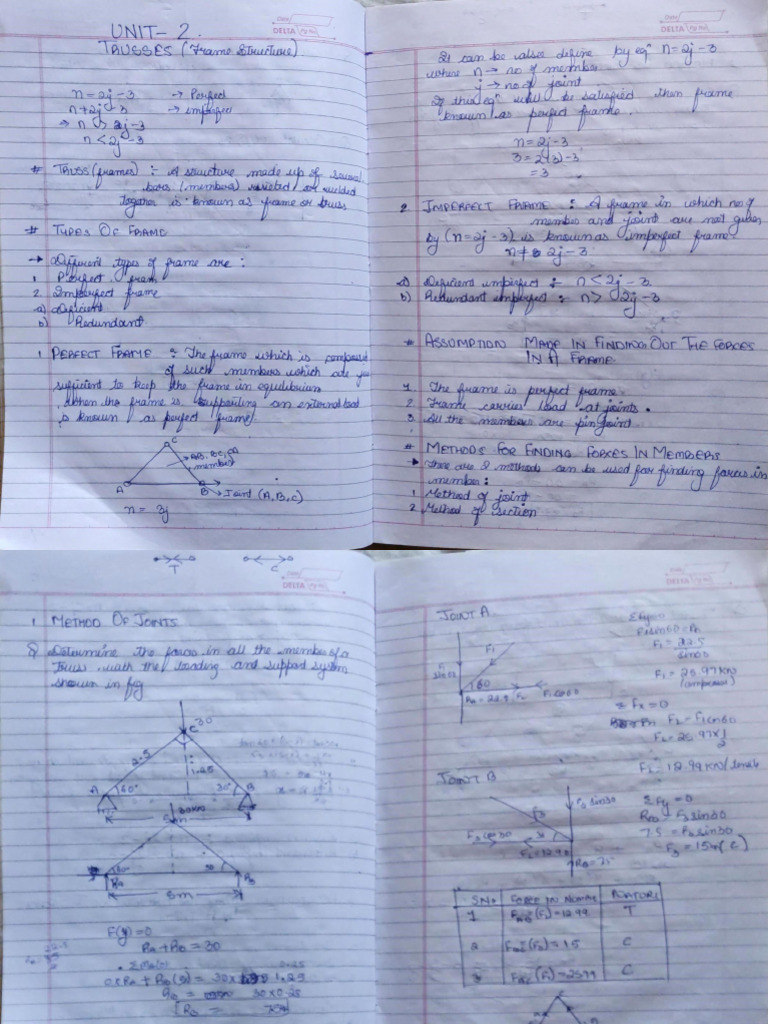 Date
DELTA Pg No
UNIT- 2.
TRUSSES (Frame Structure)
n = 2j - 3 → Perfect
n ≠ 2j - 3 → imperfect
⇒ n > 2j - 3
n < 2j - 3
# TRUSS (frames) :- A structure made up of several
bars (members) riveted or welded
together is known as frame or truss
# TYPES OF FRAME
→ Different types of frame are :
1 Perfect fram
2. Imperfect frame
a) Deficient
b) Redundant
1 PERFECT FRAME : The frame which is composed
of such members which are jus
sufficient to keep the frame in equilibrium
when the frame is supporting an external load
is known as perfect frame
C
AB, BC, CA
member
A
B
Joint (A, B, C)
n = 2j
Date
DELTA Pg No
It can be also define by eqn n = 2j - 3
where n → no of member
j → no of joint
If this eqn will be satisfied then frame
known as perfect frame.
n = 2j - 3
3 = 2(3) - 3
= 3
2 IMPERFECT FRAME : A frame in which no of
member and joint are not given
by (n = 2j - 3) is known as imperfect frame
n ≠ 2j - 3
a) Deficient imperfect :- n < 2j - 3
b) Redundant imperfect :- n > 2j - 3
* ASSUMPTION MADE IN FINDING OUT THE FORCES
IN A FRAME
1. The frame is perfect frame
2. Frame carries load at joints.
3. All the members are pin joint
# METHODS FOR FINDING FORCES IN MEMBERS
→ There are 2 methods can be used for finding forces in
member:
1 Method of joint
2. Method of section
T
C
Date
DELTA Pg No
1 METHOD OF JOINTS
Q Determine the forces in all the member of a
Truss with the loading and support system
shown in fig
30
C
2.5
1.25
A
60°
30°
B
30KN
5m
RA
RB
5m
F(y)=0
RA + RB = 30
30 × 1.25
RB =
30 × 0.25
RB =
DELTA Pg No
JOINT A.
F1
F1 sin60
60
RA = 22.5
F2
F1 cos60
ΣFy=0
F1 sin60 = RA
F1 = 22.5
sin60
F1 = 25.97 KN
(compressive)
ΣFx = 0
F2 = F1 cos60
F2 = 25.97 × 1
2
F2 = 12.99 KN (tensile
JOINT B
F3 sin30
F3
F3 cos30
30
F2 = 12.99
RB = 7.5
ΣFy = 0
RB = F3 sin30
7.5 = F3 sin30
F3 = 15 KN (C)
S No. FORCE IN MEMBER NATURE
1 (F2) = 12.99 T
2 (F3) = 15 C
3 (F1) = 25.97 C